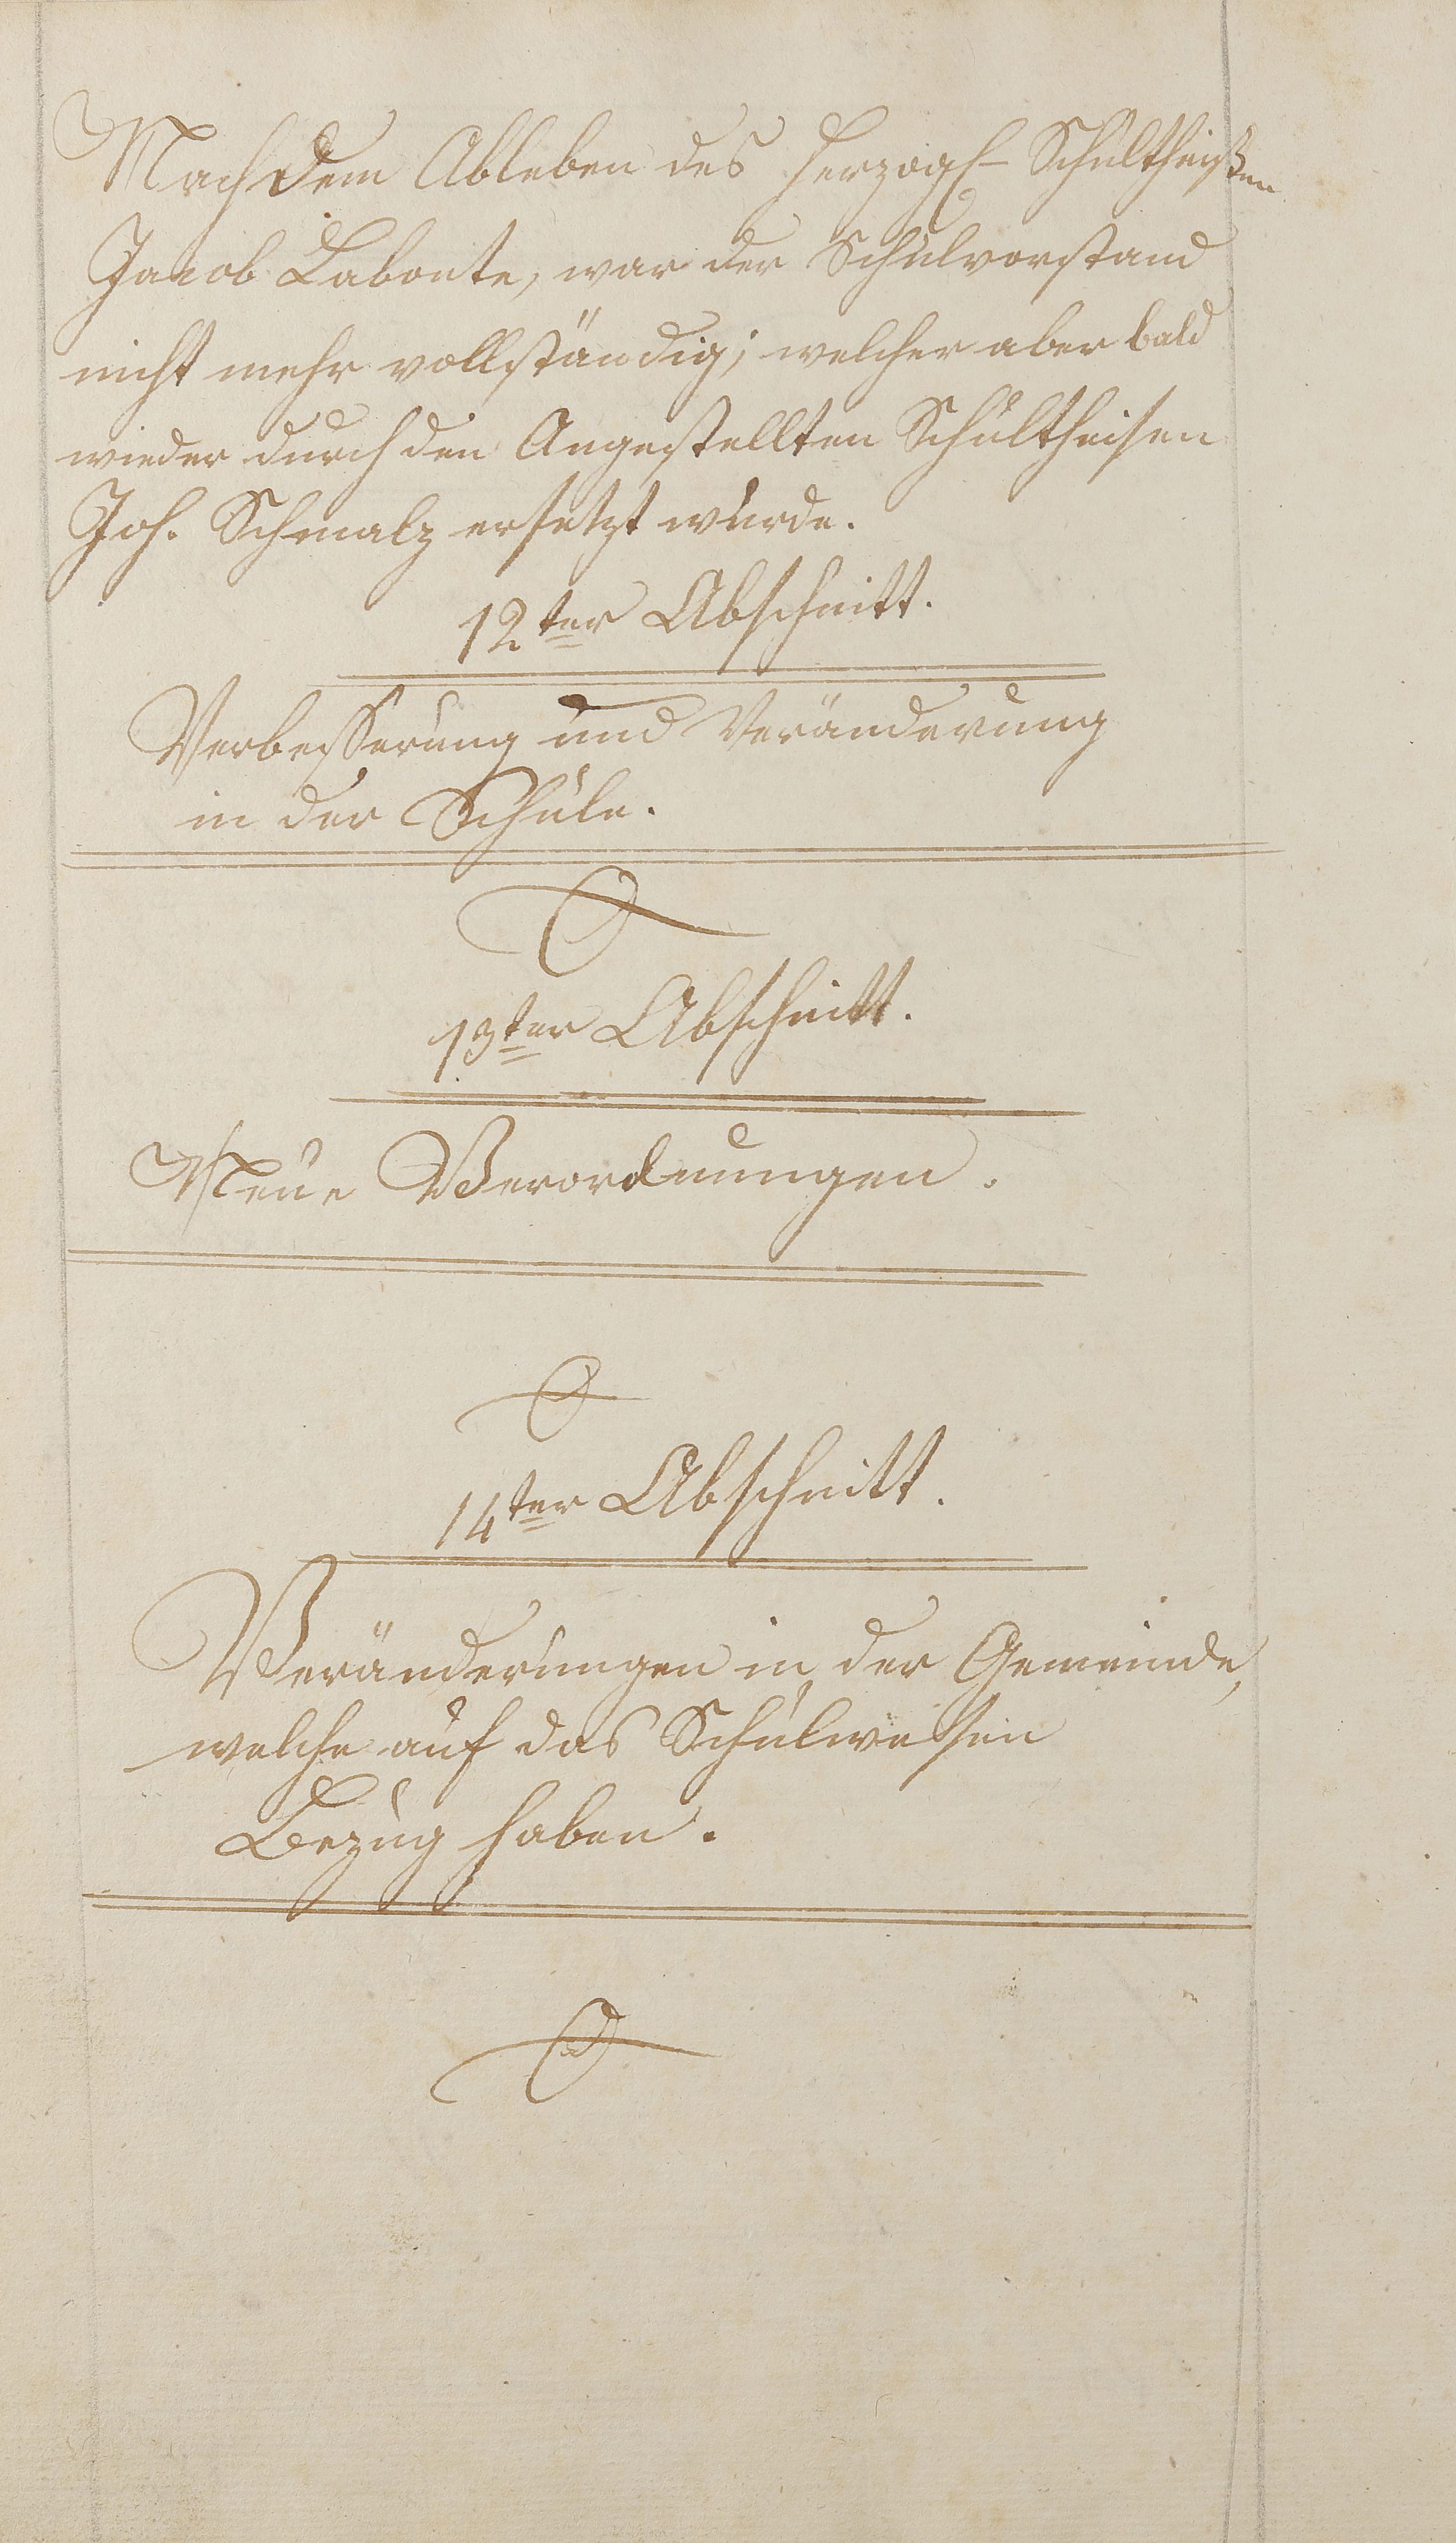 Nach dem Ableben des Herzogl- Schultheißen
Jacob Labonte, war der Schulvorstand
nicht mehr vollständig; welcher aber bald
wieder durch den Angestellten Schultheisen
Joh. Schmalz ersetzt wurde.
12ter Abschnitt.
Verbesserung und Veränderung
in der Schule.
13ter Abschnitt.
Neue Verordnungen.
14ter Abschnitt.
Veränderungen in der Gemeinde,
welche auf das Schulwesen
Bezug haben.